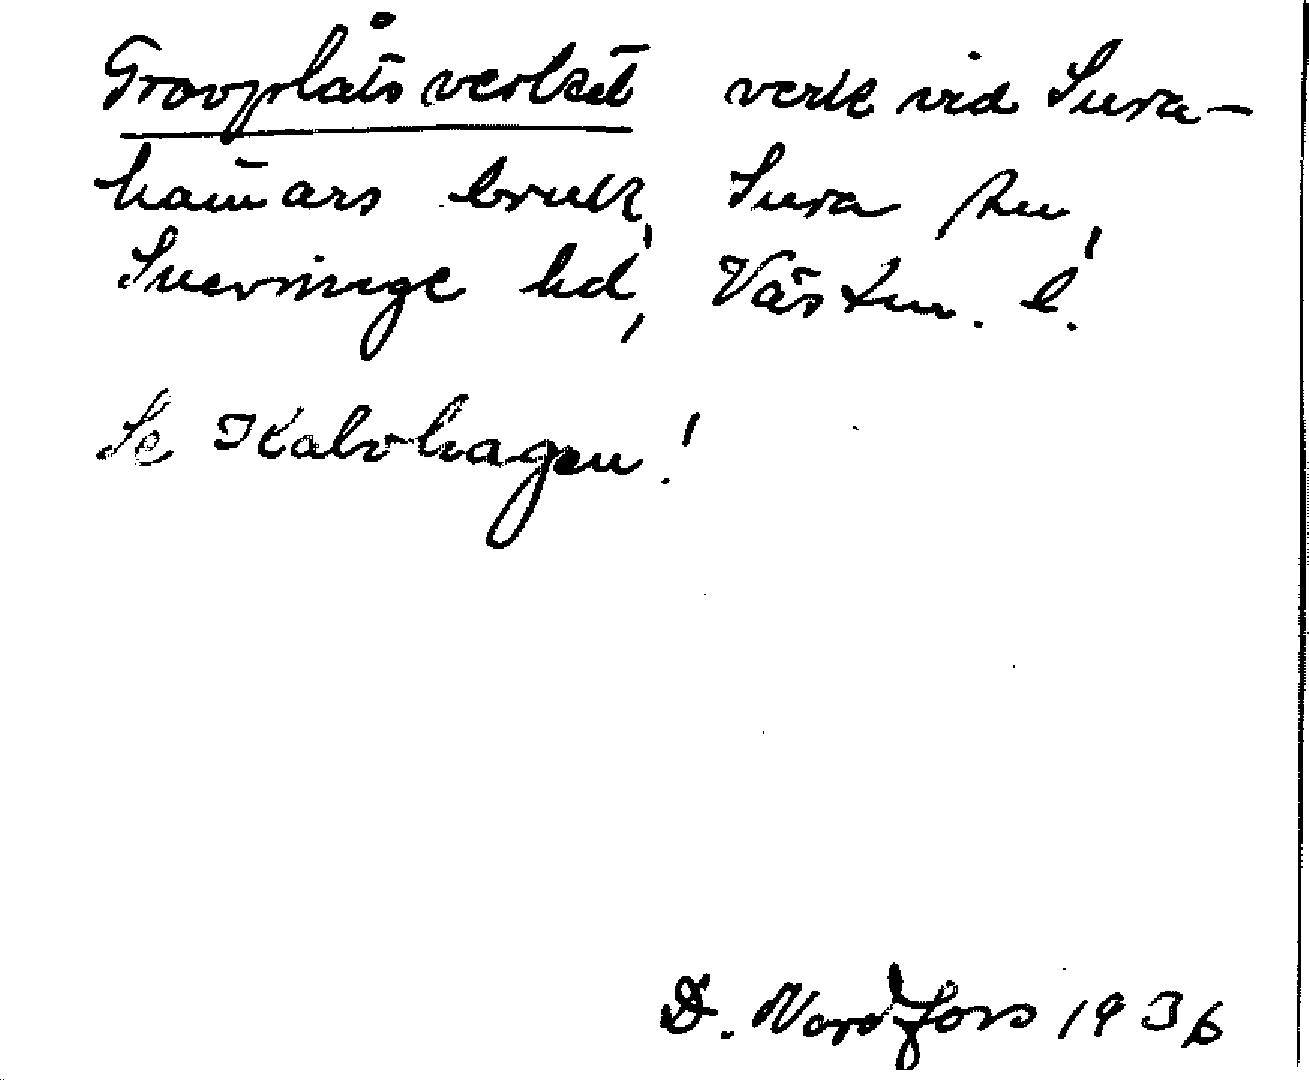 Grovplåtsverket verk vid Sura-
hammars bruk, Sura sn,
Snevringe hd, Västm. l.
Se Kalvhagen!
D. Nordfors 1936